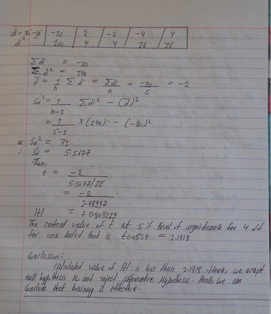 d = x - y | -10 | 2 | -2 | -4 | 4
d² | 100 | 4 | 4 | 16 | 16
Σdi = -10
Σd² = 140
d̄ = 1/n Σ d = Σdi/n = -10/5 = -2
Sd² = 1/n-1 Σdi² - (d̄)²
= 1/5-1 × (140) - (-2)²
Sd² = 31
∴ Sd = 5.5677
Then,
t = -2 / 5.5677/√5
= -2 / 2.48997
|t| = + 0.803219
The critical value of t at 5% level of significance for 4 df
for one tailed test is t0.05,4 = 2.1318
Conclusion:
Calculated value of |t| is less than 2.1318 we accept
null hypothesis not reject alternative hypothesis. Hence we can
conclude that training is effective.